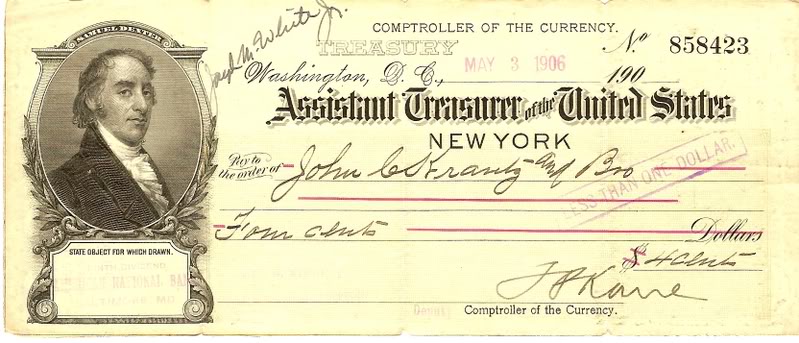 SAMUEL DEXTER
COMPTROLLER OF THE CURRENCY.
TREASURY
No 858423
Washington, D. C., MAY 3 1906 190
Assistant Treasurer of the United States
NEW YORK
Pay to
the order of John C Krantz and Bro
LESS THAN ONE DOLLAR.
Four cents Dollars
$ 4 cents
STATE OBJECT FOR WHICH DRAWN.
DIVIDEND
NATIONAL BA
MD
T P Kane
Deputy Comptroller of the Currency.